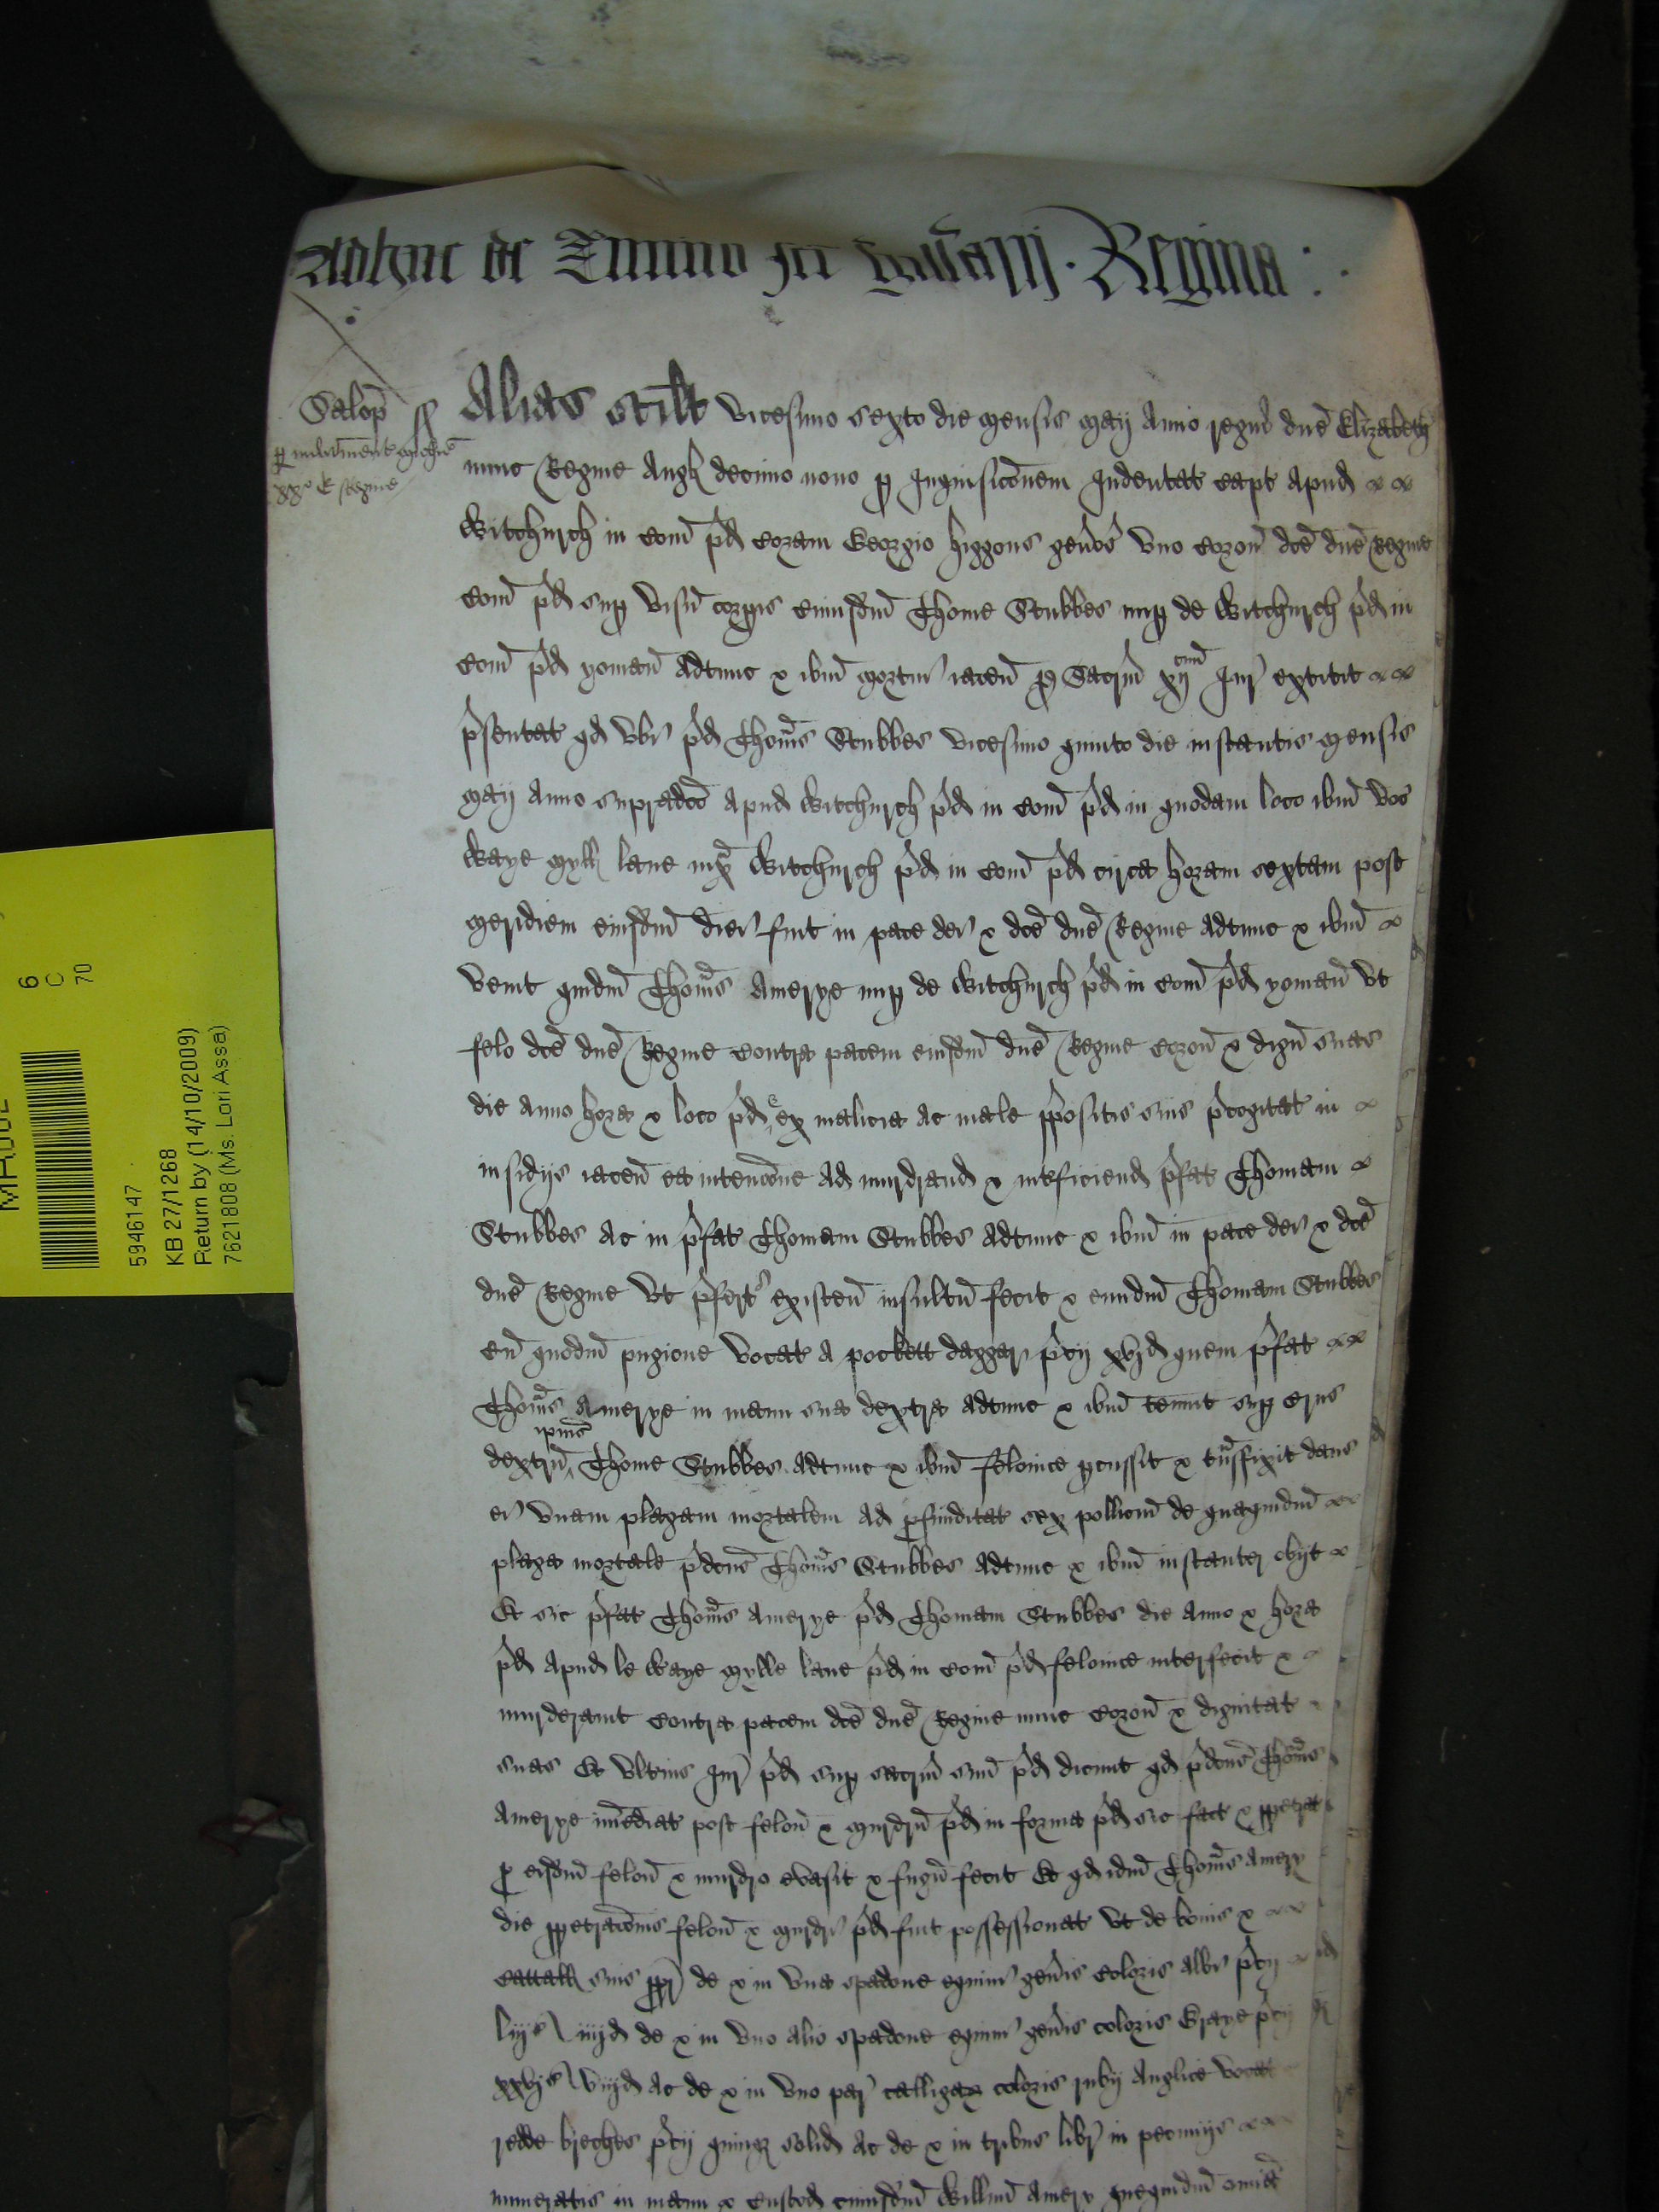 Adhuc de Termino Regina
Salop ss
Alias scilt vicesimo sexto die mensis Maij Anno regni dne Elizabeth
nunc Regine Angl decimo nono p Inquisicoem Indentat capt apud
Witchurch in Com pd coram Georgio Higgons genos vno Coron dce dne Regine
Com pd sup visu corpis cuiusdm Thome Stubbes nup de Witchurch pd in
Com pd yoman adtunc & ibm mortui iacen p Sacrm xij Jur extitit
psentat qd vbi pd Thomas Stubbes vicesimo quinto die instantis mensis
Maij Anno supradco apud Witchurch pd in Com pd in quodam loco ibm voc
Waye Myll lane iuxta Witchurch pd in Com pd circa horam sextam post
meridiem eiusdm diei fuit in pace dei & dce dne Regine adtunc & ibm
venit quidm Thomas Amerye nup de Witchurch pd in Com pd yoman vt
felo dce dne Regine contra pacem eiusdm dne Regine coron & dign suas
die anno hora & loco pd ex malicia ac male ppositis suis pcogitat in
insidijs iacen ea intencone ad murdrand & intficiend pfat Thomam
Stubbes ac in pfat Thomam Stubbes adtunc & ibm in pace dei & dce
dne Regine vt pfert existen insultu fecit & eundm Thomam Stubbes
cu quodm pugione vocat a pockett daggar pcij xvjd quem pfat
Thomas Amerye in manu sua dextra adtunc & ibm tenuit sup crus
dextru ipius Thome Stubbes adtunc & ibm felonice pcussit & transfixit dans
ei vnam plagam mortalem ad pfunditat sex pollicm de quaquidm
plaga mortale pdcus Thomas Stubbes adtunc & ibm instanter obijt
Et sic pfat Thomas Amerye pd Thomam Stubbes die anno & hora
pd apud le Waye Mylle lane pd in Com pd felonice interfecit &
murderauit contra pacem dce dne Regine nunc coron & dignitat
suas Et vlterius Jur pd sup sacrm suu pd dicunt qd pdcus Thomas
Amerye imediat post felon & murdru pd in forma pd sic fact & ppetrat
p eisdm felon & murdro evasit & fugam fecit Et qd idm Thomas Amery
die ppetracois felon & murdri pd fuit possessionat vt de bonis &
cattall suis ppr de & in vno spadone equini genis coloris albi pcij
liijs iiijd de & in vno alio spadone equini genis coloris Graye pcij
xxvjs viijd ac de & in vno par calligar coloris rubij Anglice vocat
redde breches pcij quinq solid ac de & in tribus libr in pecunijs
numeratis in manu & custod cuiusdm Willmi Amery quequidm omia
5946147
KB 27/1268
Return by (14/10/2009)
7621808 (Ms. Lori Assa)
6
C
70